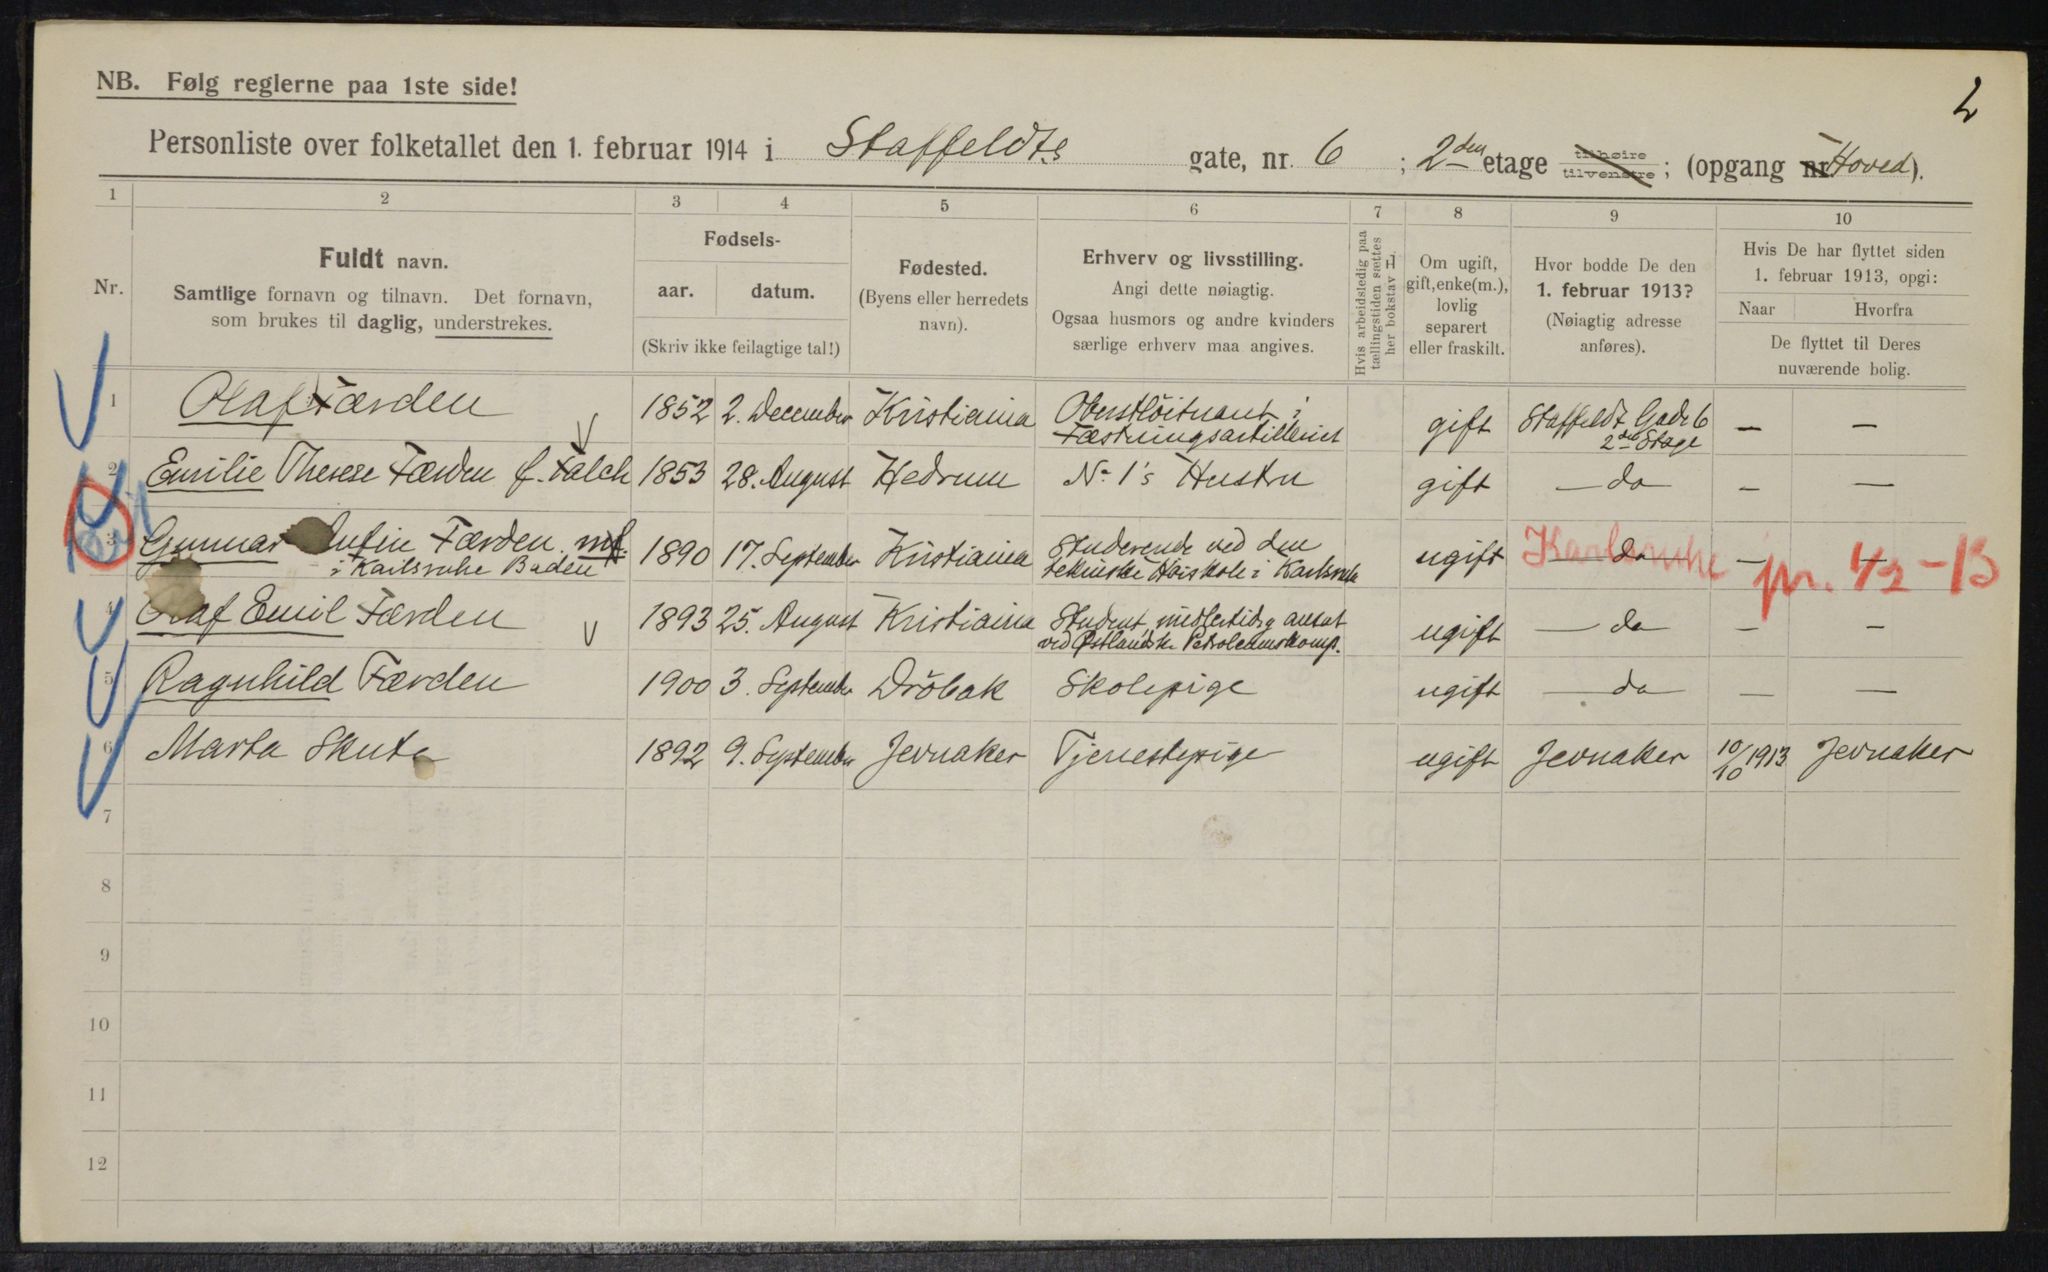 NB. Følg reglerne paa 1ste side!
2
Personliste over folketallet den 1. februar 1914 i Staffeldts gate, nr. 6 ; 2den etage tilhøire tilvenstre ; (opgang nr Hoved).
1 2 3 4 5 6 7 8 9 10
Nr.
Fuldt navn.
Samtlige fornavn og tilnavn. Det fornavn,
som brukes til daglig, understrekes.
Fødsels-
aar. datum.
(Skriv ikke feilagtige tal!)
Fødested.
(Byens eller herredets
navn).
Erhverv og livsstilling.
Angi dette nøiagtig.
Ogsaa husmors og andre kvinders
særlige erhverv maa angives.
Hvis arbeidsledig paa
tællingstiden sættes
her bokstav L.
Om ugift,
gift, enke(m.),
lovlig
separert
eller fraskilt.
Hvor bodde De den
1. februar 1913?
(Nøiagtig adresse
anføres).
Hvis De har flyttet siden
1. februar 1913, opgi:
Naar Hvorfra
De flyttet til Deres
nuværende bolig.
1 Olaf Færden 1852 2. December Kristiania Oberstløitnant i Fæstningsartilleriet gift Staffeldt Gade 6 2den Etage — —
2 Emilie Therese Færden f. Falch 1853 28. August Hedrum No 1's Hustru gift — do — —
3 Gunnar Færden mf. i Karlsruhe Baden 1890 17. September Kristiania Studerende ved den tekniske Høiskole i Karlsruhe ugift — do — — Karlsruhe pr. 1/2-13
4 Olaf Emil Færden 1893 25. August Kristiania Student, midlertidig ansat ved Østlandske Petroleumskomp. ugift — do — — —
5 Ragnhild Færden 1900 3. September Dröbak Skolepige ugift — do — — —
6 Marta Skute 1892 9. September Jevnaker Tjenestepige ugift Jevnaker 10/10 1913 Jevnaker
7
8
9
10
11
12